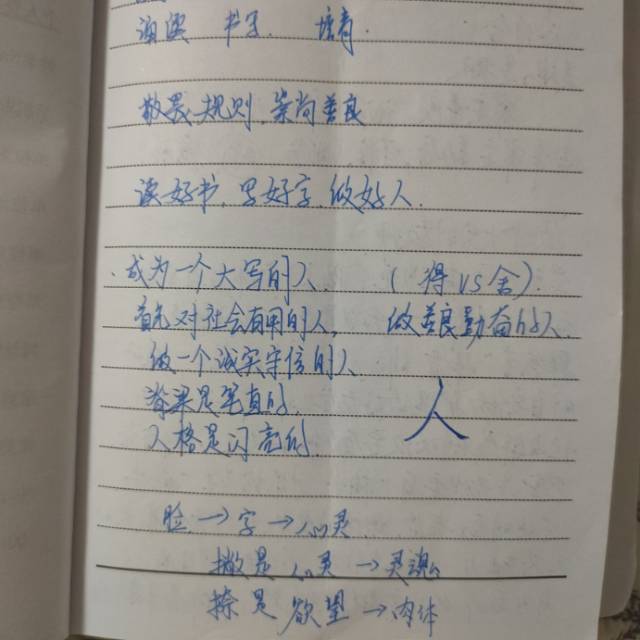 培育
敬畏规则 崇尚善良
读好书,写好字,做好人.
成为一个大写的人. (得 vs 舍).
首先对社会有用的人, 做善良勤奋的人.
做一个诚实守信的人
脊梁是笔直的.
人格是闪亮的.
人
脸→字→心灵
撇是心灵→灵魂
捺是欲望→肉体